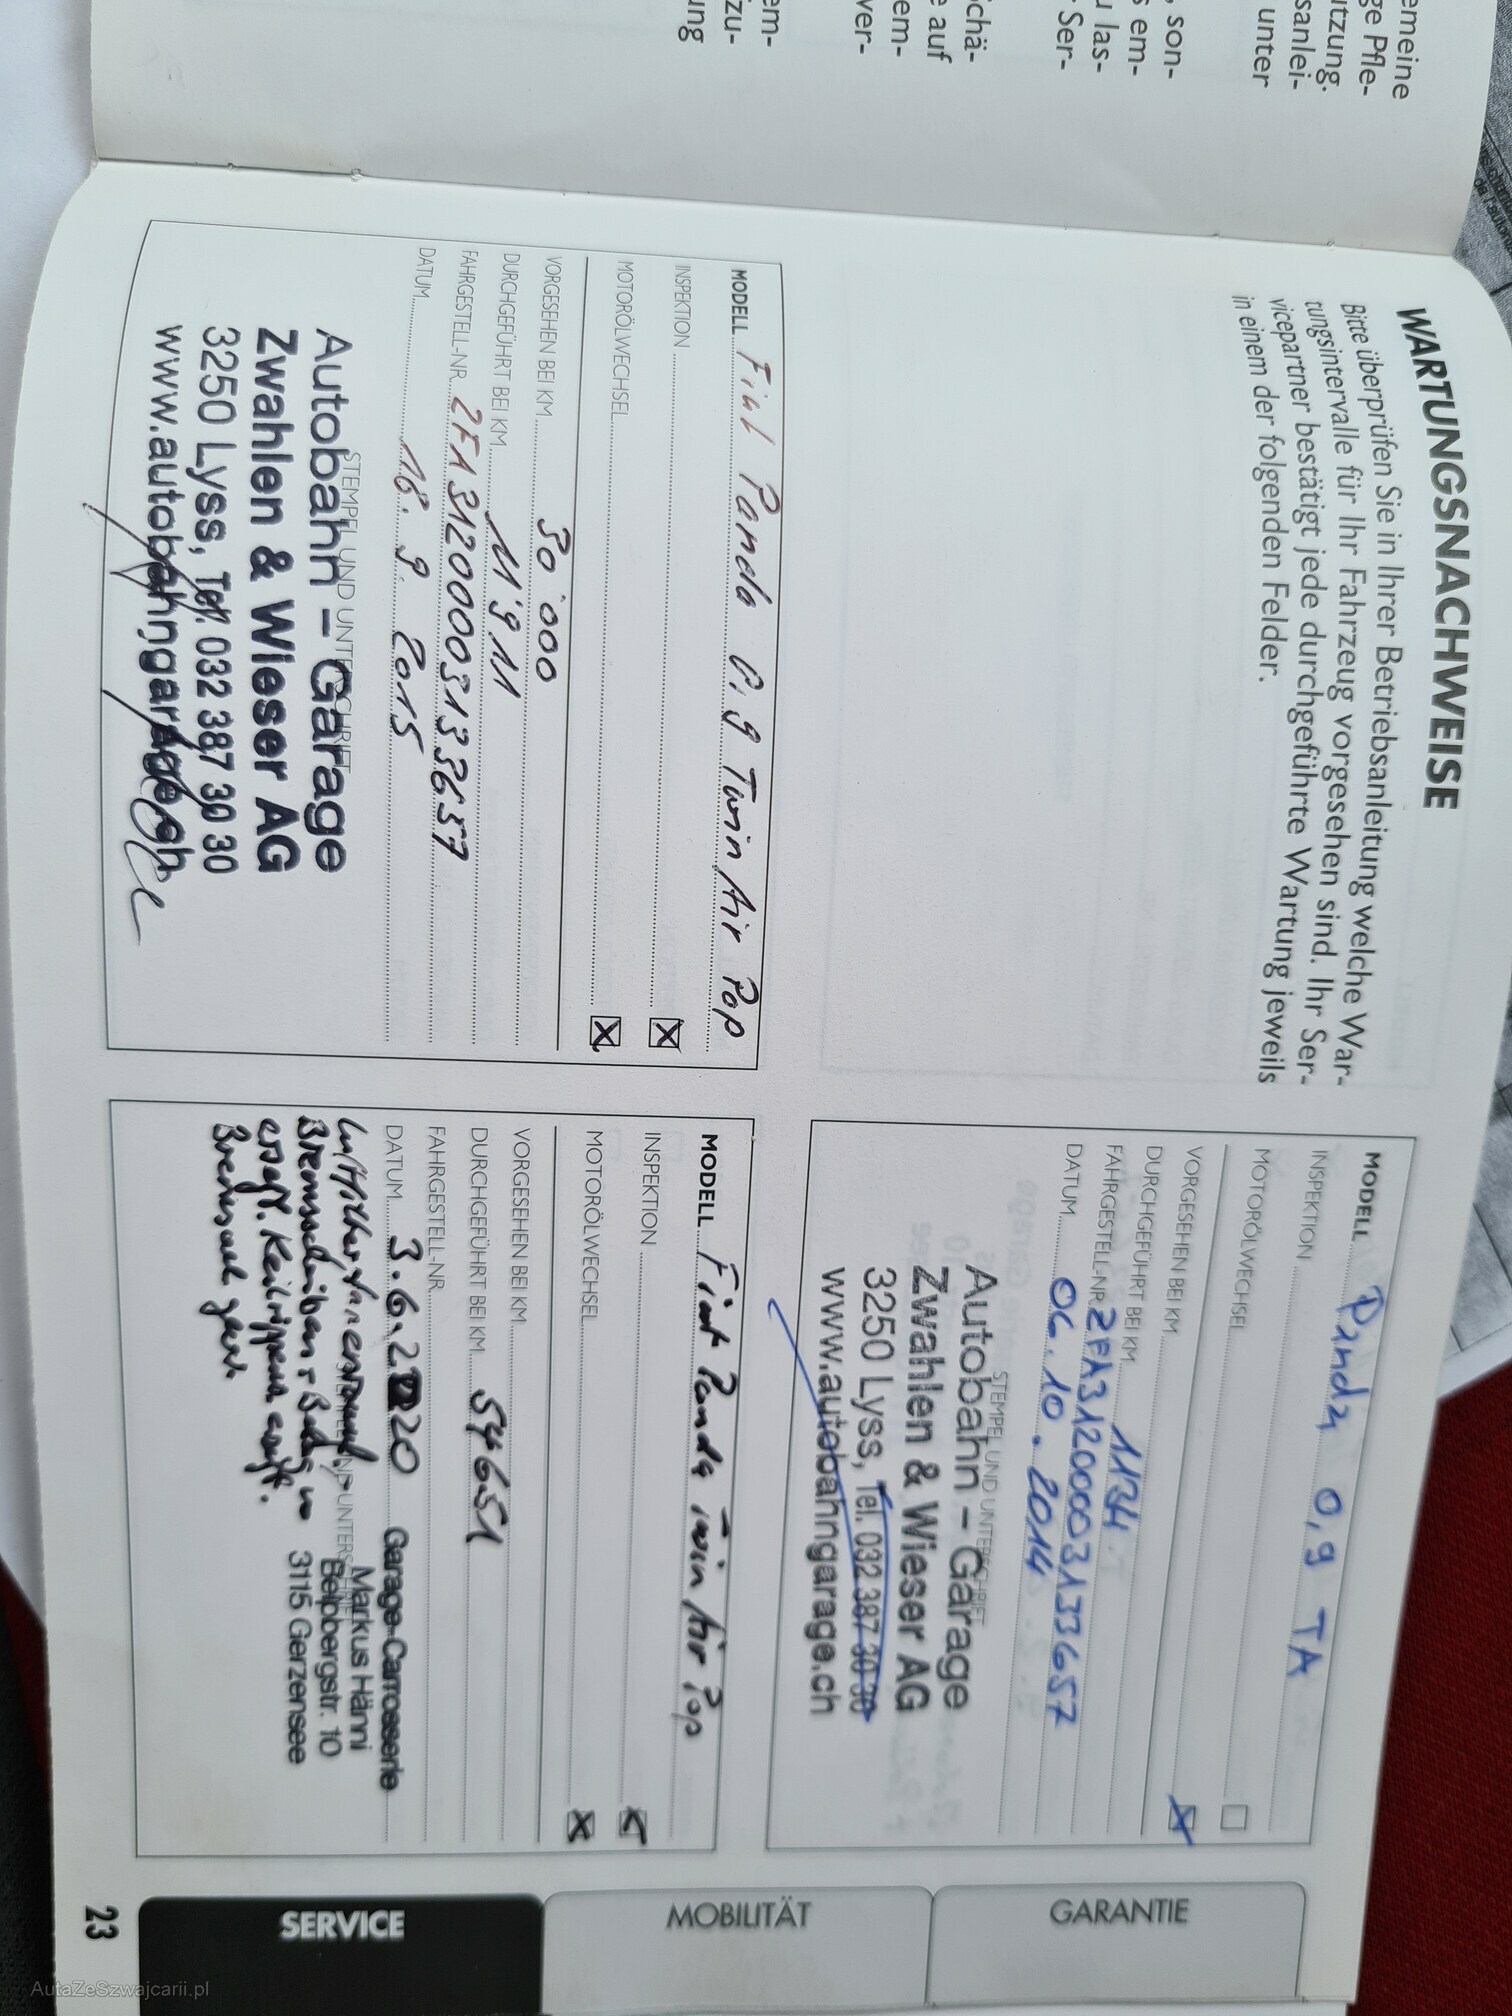 emeine
ge Pfle-
utzung.
sanlei-
unter
, son-
s em-
u las-
r Ser-
chä-
e auf
em-
ver-
em-
zu-
ung
WARTUNGSNACHWEISE
Bitte überprüfen Sie in Ihrer Betriebsanleitung welche War-
tungsintervalle für Ihr Fahrzeug vorgesehen sind. Ihr Ser-
vicepartner bestätigt jede durchgeführte Wartung jeweils
in einem der folgenden Felder.
MODELL Panda 0,9 TA
INSPEKTION
MOTORÖLWECHSEL
VORGESEHEN BEI KM
DURCHGEFÜHRT BEI KM 1134
FAHRGESTELL-NR. ZFA31200003133657
DATUM 06.10.2014
STEMPEL UND UNTERSCHRIFT
Autobahn – Garage
Zwahlen & Wieser AG
3250 Lyss, Tel. 032 387 30 30
www.autobahngarage.ch
MODELL Fiat Panda 0,9 Twin Air Pop
INSPEKTION X
MOTORÖLWECHSEL X
VORGESEHEN BEI KM 30'000
DURCHGEFÜHRT BEI KM 11'911
FAHRGESTELL-NR. ZFA31200003133657
DATUM 18.9.2015
STEMPEL UND UNTERSCHRIFT
Autobahn – Garage
Zwahlen & Wieser AG
3250 Lyss, Tel. 032 387 30 30
www.autobahngarage.ch
MODELL Fiat Panda Twin Air Pop
INSPEKTION
MOTORÖLWECHSEL X
VORGESEHEN BEI KM
DURCHGEFÜHRT BEI KM 54651
FAHRGESTELL-NR.
DATUM 3.6.2020
Garage-Carrosserie
Markus Hänni
Belpbergstr. 10
3115 Gerzensee
Luftfilter,
Bremsscheiben +
ersetzt. Keilrippen ersetzt.
GARANTIE
MOBILITÄT
SERVICE
23
AutaZeSzwajcarii.pl